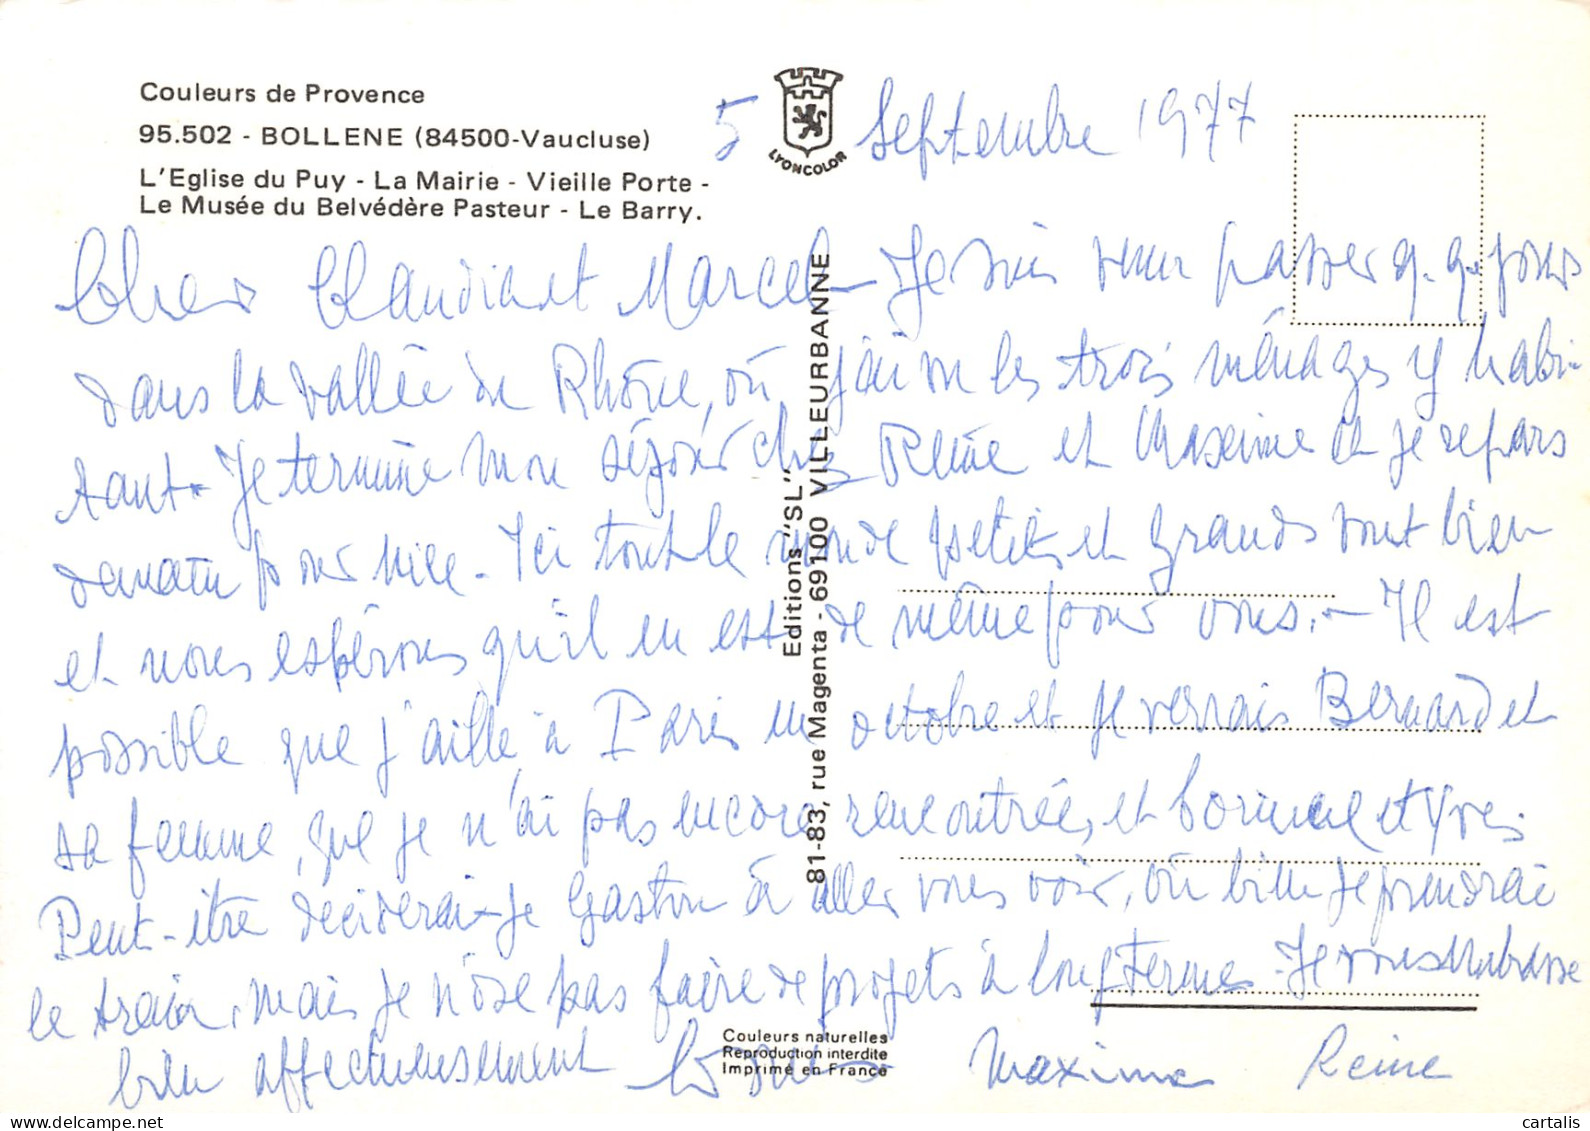 Couleurs de Provence
95.502 - BOLLENE (84500-Vaucluse)
L'Eglise du Puy - La Mairie - Vieille Porte -
Le Musée du Belvédère Pasteur - Le Barry.
LYONCOLOR
5 Septembre 1977
Chers Claudie et Marcel - Je suis venue passer q.q. jours
dans la vallée du Rhône, où j'ai vu les trois ménages y habi-
tant. Je termine mon séjour chez Reine et Maxime et je repars
demain pour Nice. Ici tout le monde petits et grands vont bien
et nous espérons qu'il en est de même pour vous. - Il est
possible que j'aille à Paris en octobre et je verrais Bernard et
sa femme, que je n'ai pas encore rencontrée, et Corinne et Yves.
Peut-être déciderai-je Gaston à aller vous voir, où bien je prendrai
le train, mais je n'ose pas faire de projets à long terme. Je vous embrasse
bien affectueusement
Maxime Reine
Editions "SL"
81-83, rue Magenta - 69100 VILLEURBANNE
Couleurs naturelles
Reproduction interdite
Imprimé en France
delcampe.net
cartalis